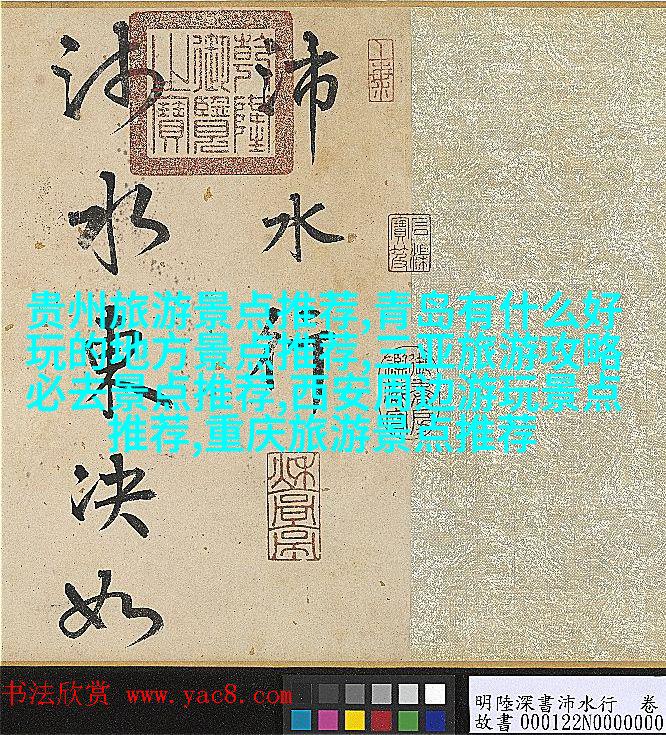 沛水行
沛水東決如
乾隆
御覽
之寶
贵州旅游景点推荐,青岛有什么好
玩的地方景点推荐,三亚旅游攻略
必去景点推荐,西安周边游玩景点
推荐,重庆旅游景点推荐
书法欣赏 www.yac8.com
明陸深書沛水行 卷
故書 000122N0000000